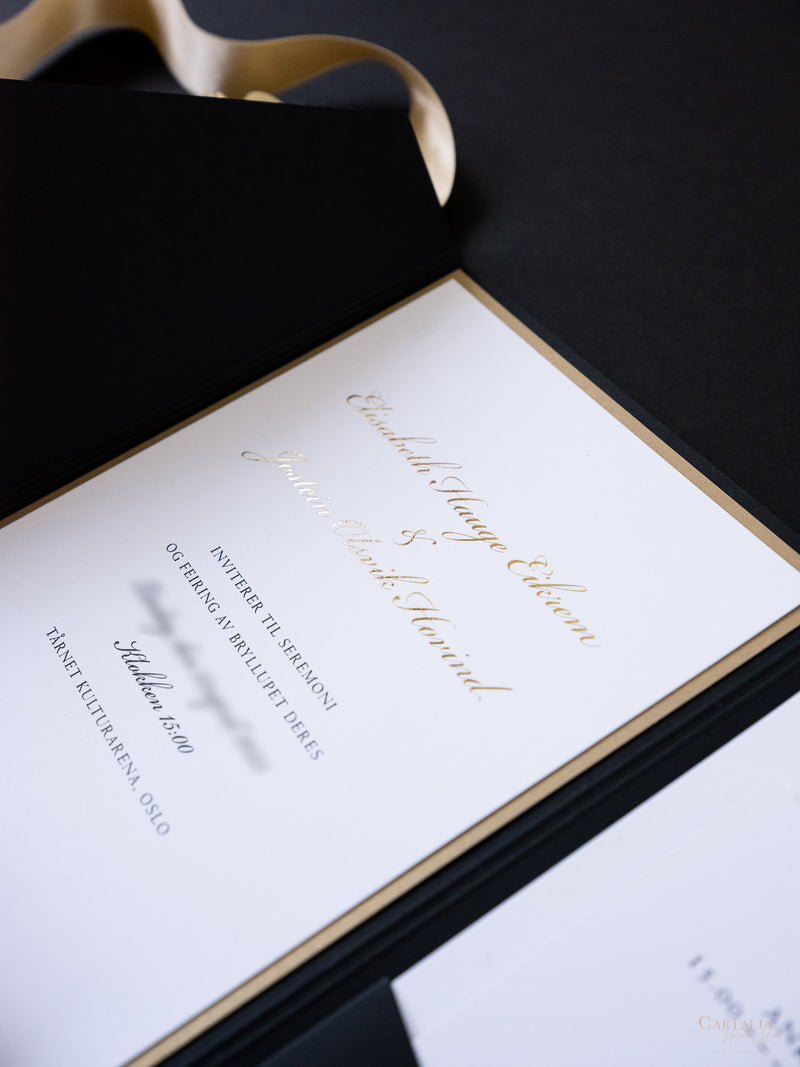 Elisabeth Hauge Eikrem
&
Jostein Olsvik Hovind
INVITERER TIL SEREMONI
OG FEIRING AV BRYLLUPET DERES
Klokken 15:00
TÅRNET KULTURARENA, OSLO
15.00
CARTALIA